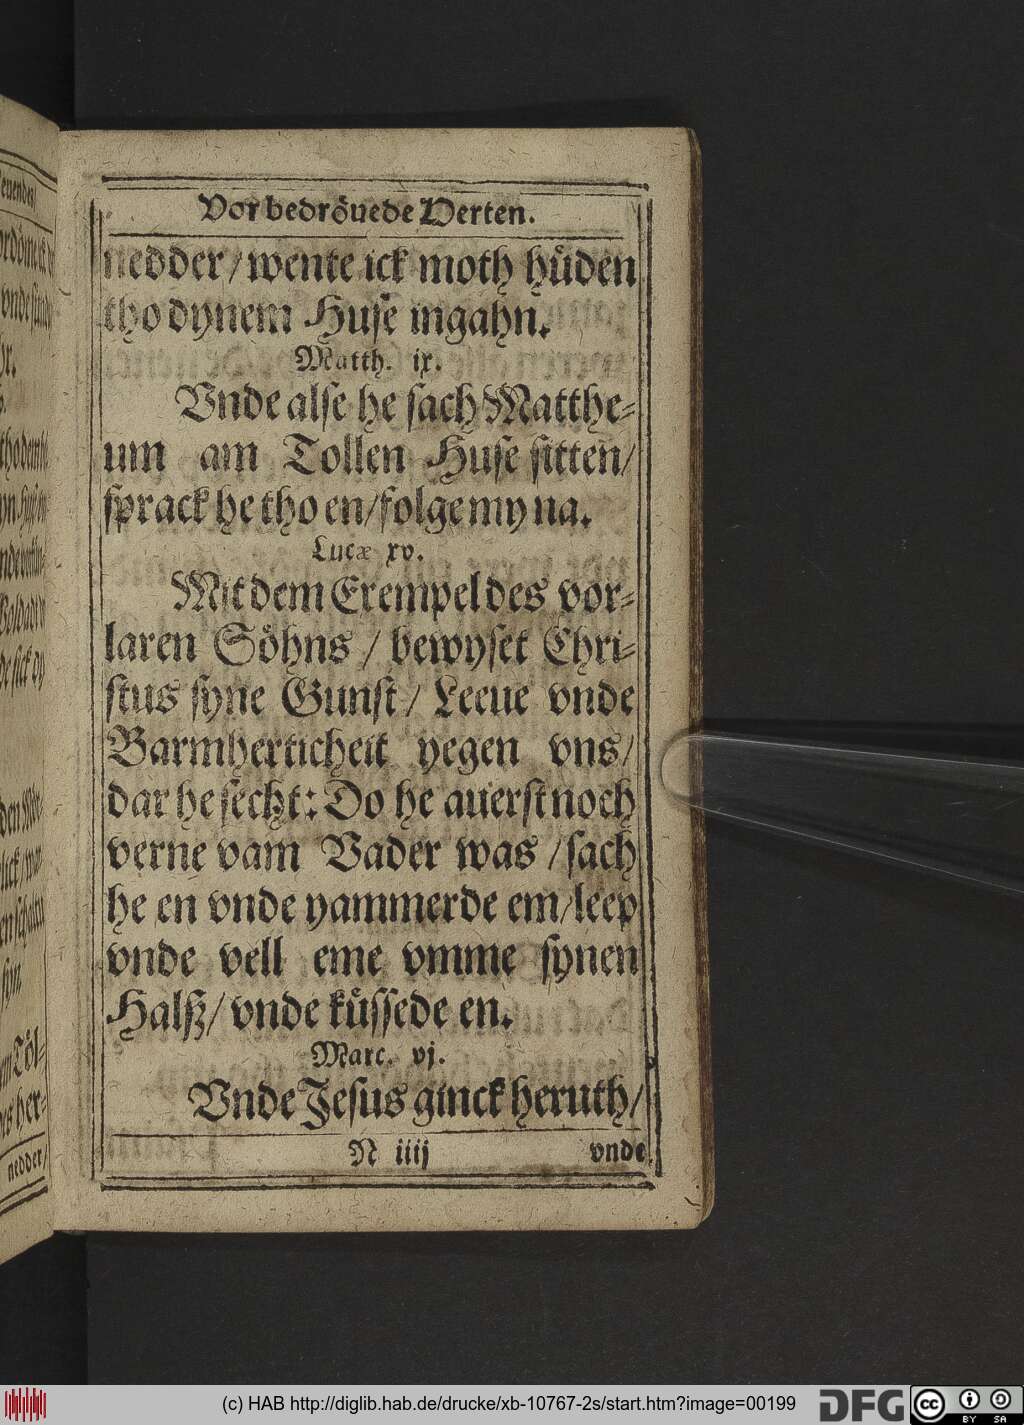 Vor bedröuede Herten.
nedder/ wente ick moth hüden
tho dynem Huse ingahn.
Matth. ix.
Vnde alse he sach Matthe-
um am Tollen Huse sitten/
sprack he tho en/ folge my na.
Lucæ xv.
Mit dem Exempel des vor-
laren Söhns / bewyset Chri-
stus syne Gunst/ Leeue vnde
Barmherticheit yegen vns/
dar he secht: Do he auerst noch
verne vam Vader was / sach
he en vnde yammerde em/ leep
vnde vell eme vmme synen
Halß/ vnde küssede en.
Marc. vj.
Vnde Jesus ginck heruth/
N iiij vnde
nedder/
(c) HAB http://diglib.hab.de/drucke/xb-10767-2s/start.htm?image=00199
DFG
cc BY SA